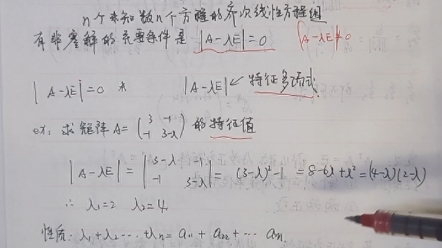 n个未知数n个方程的齐次线性方程组
有非零解的充要条件是 |A-λE|=0 |A-λE|≠0
|A-λE|=0 * |A-λE| ↙ 特征多项式
ex: 求矩阵A=(3 -1 -1 3-λ) 的特征值
|A-λE| = |3-λ -1 -1 3-λ| = (3-λ)²-1 = 8-6λ+λ² = (4-λ)(2-λ)
∴ λ₁=2 λ₂=4
性质: λ₁+λ₂...+λₙ = a₁₁ + a₂₂ + ... aₙₙ